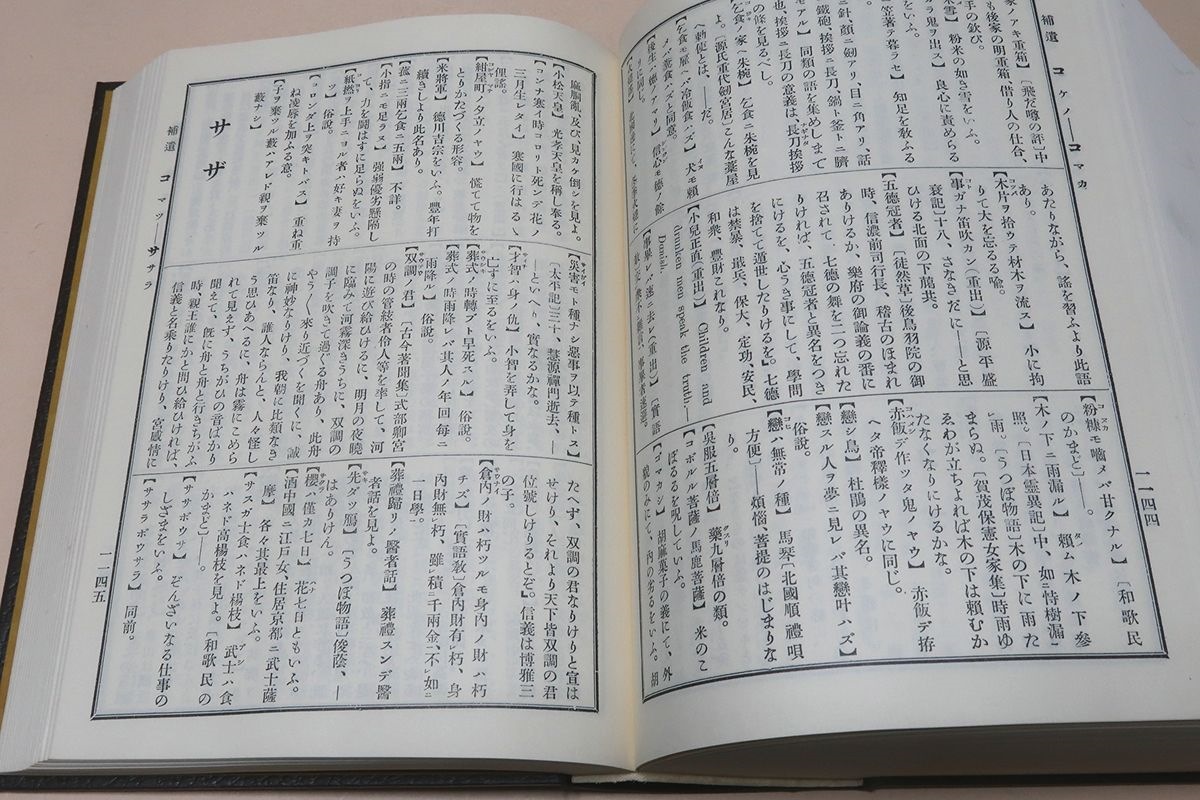 補遺 コケノ――コマカ
家ノアキ重箱〕〔飛鴳噂の評〕中
も後家の明重箱、借り人の仕合、
手の欽び。
粉米の如き雪をいふ。
鬼ヲ出ス〕良心に責めらる
ニ笠著テ暮ラセ〕知足を敎ふる
ニ針、顏ニ劒アリ、目ニ角アリ、話
鐵砲、挨拶ニ長刀、鍋ト釜トニ臍
モアル〕同類の語を集めしまで
也、挨拶ニ長刀の意義は、長刀挨拶
の條を見るべし。
乞食ノ家ヘ朱椀〕乞食ニ朱椀を見
〔源氏重代劒宮居〕こんな藁屋
へ勅使とは、――だ。
乞食モ雇ヘバ冷飯食ハズ〕犬モ賴
メバ糞食ハズと同意。
あたりながら、謠を習ふより此語
あり。
【木片ヲ拾ウテ材木ヲ流ス】小に拘
りて大を忘るる喩。
【事ガナ笛吹カン(重出)】〔源平盛
衰記〕十八、さなきだに――と思
ひける北面の下﨟共。
【五德冠者】〔徒然草〕後鳥羽院の御
時、信濃前司行長、稽古のほまれ
ありけるか、樂府の御論義の番に
召されて、七德の舞を二つ忘れた
りければ、五德冠者と異名をつき
にけるを、心うき事にして、學問
を捨てて遁世したりけるを。七德
は禁暴、戢兵、保大、定功、安民、
和衆、豐財これなり。
【小兒正直(重出)】Children and
drunken men speak the truth.―
Danish.
【粉糠モ嚙メバ甘クナル】〔和歌民
のかまど〕――。
【木ノ下ニ雨漏ル】賴ム木ノ下參
照。〔日本靈異記〕中、如ニ恃樹漏ニ
雨。〔うつぼ物語〕木の下に雨た
まらぬ。〔賀茂保憲女家集〕時雨ゆ
ゑわが立ちよれば木の下は賴むか
たなくなりにけるかな。
【赤飯デ作ツタ鬼ノヤウ】赤飯デ拵
ヘタ帝釋樣ノヤウに同じ。
【戀シ鳥】杜鵑の異名。
【戀スル人ヲ夢ニ見レバ其戀叶ハズ】
【戀ハ無常ノ種】馬琴〔北國順禮唄
方便〕――煩惱、菩提のはじまりな
り。
【吳服五層倍】藥九層倍の類。
【コボルル菩薩ノ馬鹿菩薩】米のこ
ぼるるを呪していふ。
【ゴマカシ】胡麻菓子の義にて、外
貌のみにて、內の劣るをいふ。胡
一一四四
補遺 コマツ――ササラ
麻胴亂、及び見カケ倒シを見よ。
【小松天皇】光孝天皇を稱し奉る。
【コンナ寒イ時コロリト死ンデ花ノ
三月生レタイ】寒國に行はるゝ
俚謠。
【紺屋町ノ夕立ノヤウ】慌てて物を
とりかたづくる形容。
【米將軍】德川吉宗をいふ。豐年打
續きしより此名あり。
【菰ニ三兩乞食ニ五兩】不詳。
【小指ニモ足ラヌ】強弱優劣懸隔し
て、力を鬪はすに足らぬをいふ。
【紙撚ヲ上手ニヨル者ハ好キ妻ヲ持
ツ】俗說。
【コロンダ上ヲ突キトバス】重ね重
ね凌辱を加ふる意。
【子ヲ棄ツル藪ハアレド親ヲ棄ツル
藪ナシ】
サ ザ
【災害モト種ナシ惡事ヲ以テ種トス】
〔太平記〕三十、慧源禪門逝去、―
―といへり、實なるかな。
【才智ハ身ノ仇】小智を弄して身を
亡すに至るをいふ。
【葬式ノ時轉ブト早死スル】俗說。
【葬式ノ時雨降レバ其人ノ年回每ニ
雨降ル】俗說。
【双調ノ君】〔古今著聞集〕式部卿宮
の時の管絃者伶人等を率して、河
陽に遊び給ひけるに、明月の夜曉
に臨みて河霧深きうちに、双調の
調子を吹きて過ぐる舟あり、此舟
やう〱來り近づくを聞くに、誠
に神妙なりけり、我朝に比類なき
笛なり、誰人ならんと、人々怪し
う思ひあへるに、舟は霧にこめら
れて見えず、うちかひの音ばかり
聞えて、旣に舟と舟と行きちがふ
時、親王誰にかと問ひ給ひければ、
信義と名乘りたりけり、宮感情に
たへず、双調の君なりけりと宣は
せけり、それより天下皆双調の君
位號しけりとぞ。信義は博雅三
の子。
【倉內ノ財ハ朽ツルモ身內ノ財ハ朽
チズ】〔實語敎〕倉內財有レ朽、身
內財無レ朽、雖レ積ニ千兩金一、不レ如ニ
一日學一。
【葬禮歸リノ醫者話】葬禮スンデ醫
者話を見よ。
【先ダツ鴈】〔うつぼ物語〕俊蔭、―
はありけん。
【櫻ハ僅カ七日】花七日ともいふ。
【酒中國ニ江戶女、住居京都ニ武士薩
摩】各々其最上をいふ。
【サスガ士食ハネド楊枝】武士ハ食
ハネド高楊枝を見よ。〔和歌民の
かまど〕――。
【ササボウサラ】ぞんざいなる仕事の
しざまをいふ。
【ササラボウサラ】同前。
一一四五